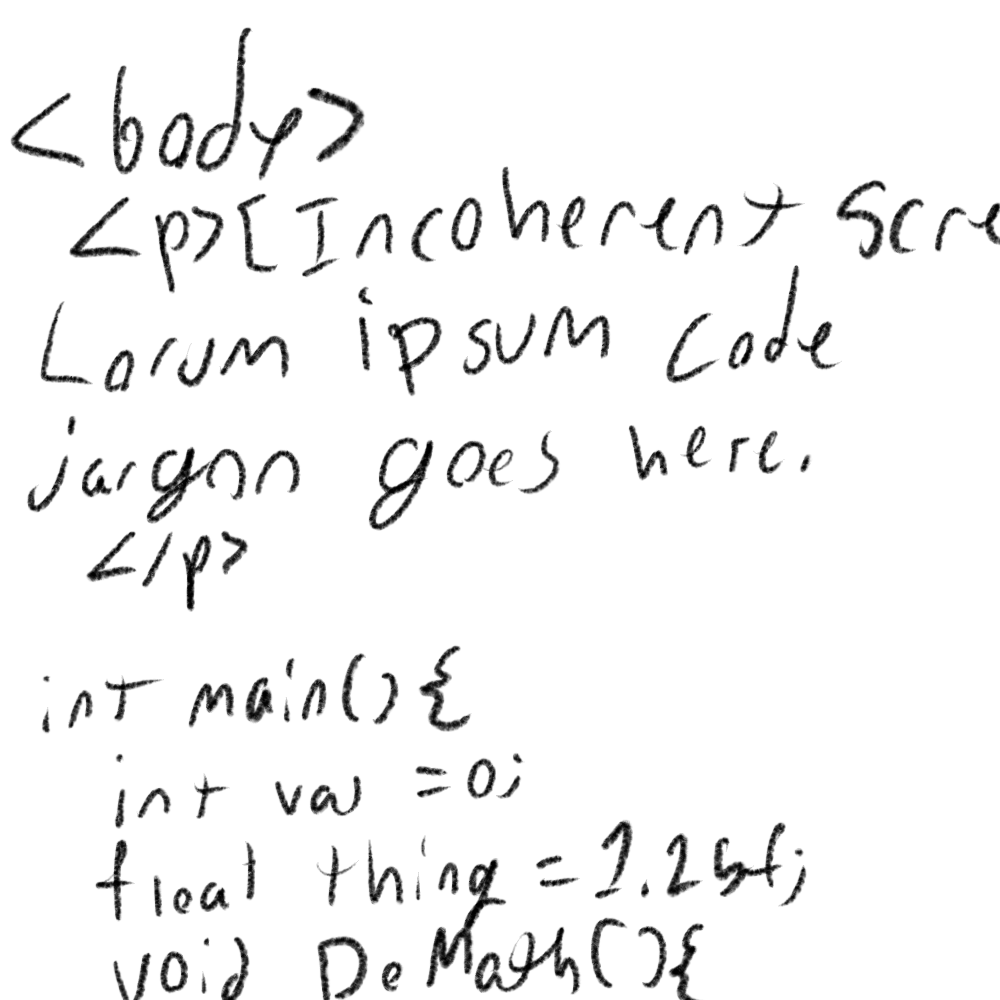 <body>
<p>[Incoherent Scre
Lorum ipsum code
jargon goes here.
</p>
int main(){
int var =0;
float thing =
void DoMath(){